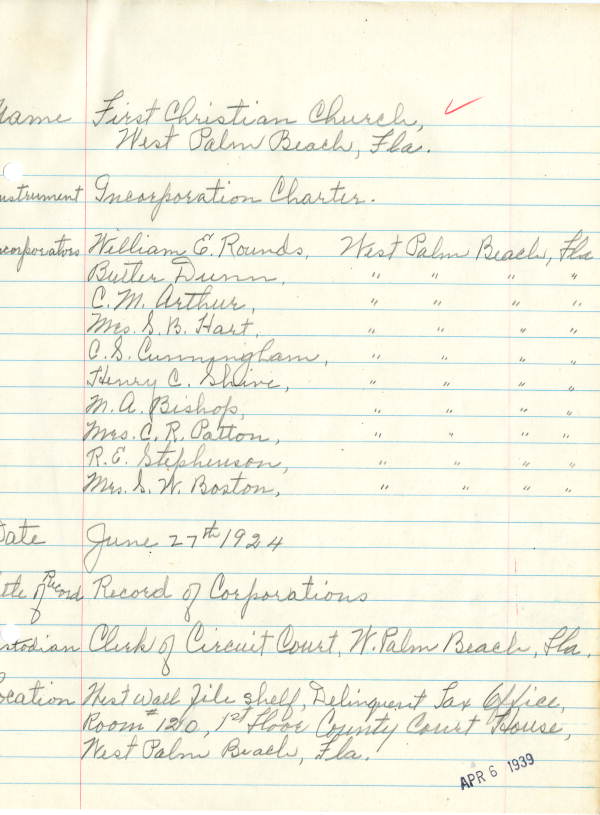 Name First Christian Church,
West Palm Beach, Fla.
Instrument Incorporation Charter.
Incorporators William E. Rounds, West Palm Beach, Fla
Butler Dunn, " " " "
C. M. Arthur, " " " "
Mrs. S. B. Hart, " " " "
C. S. Cunningham, " " " "
Henry C. Shive, " " " "
M. A. Bishop, " " " "
Mrs. C. R. Patton, " " " "
R. E. Stephenson, " " " "
Mrs. S. W. Boston, " " " "
Date June 27th 1924
Title of Record Record of Corporations
Custodian Clerk of Circuit Court, W. Palm Beach, Fla.
Location West Wall File Shelf, Delinquent Tax Office,
Room #120, 1st Floor County Court House,
West Palm Beach, Fla.
APR 6 1939